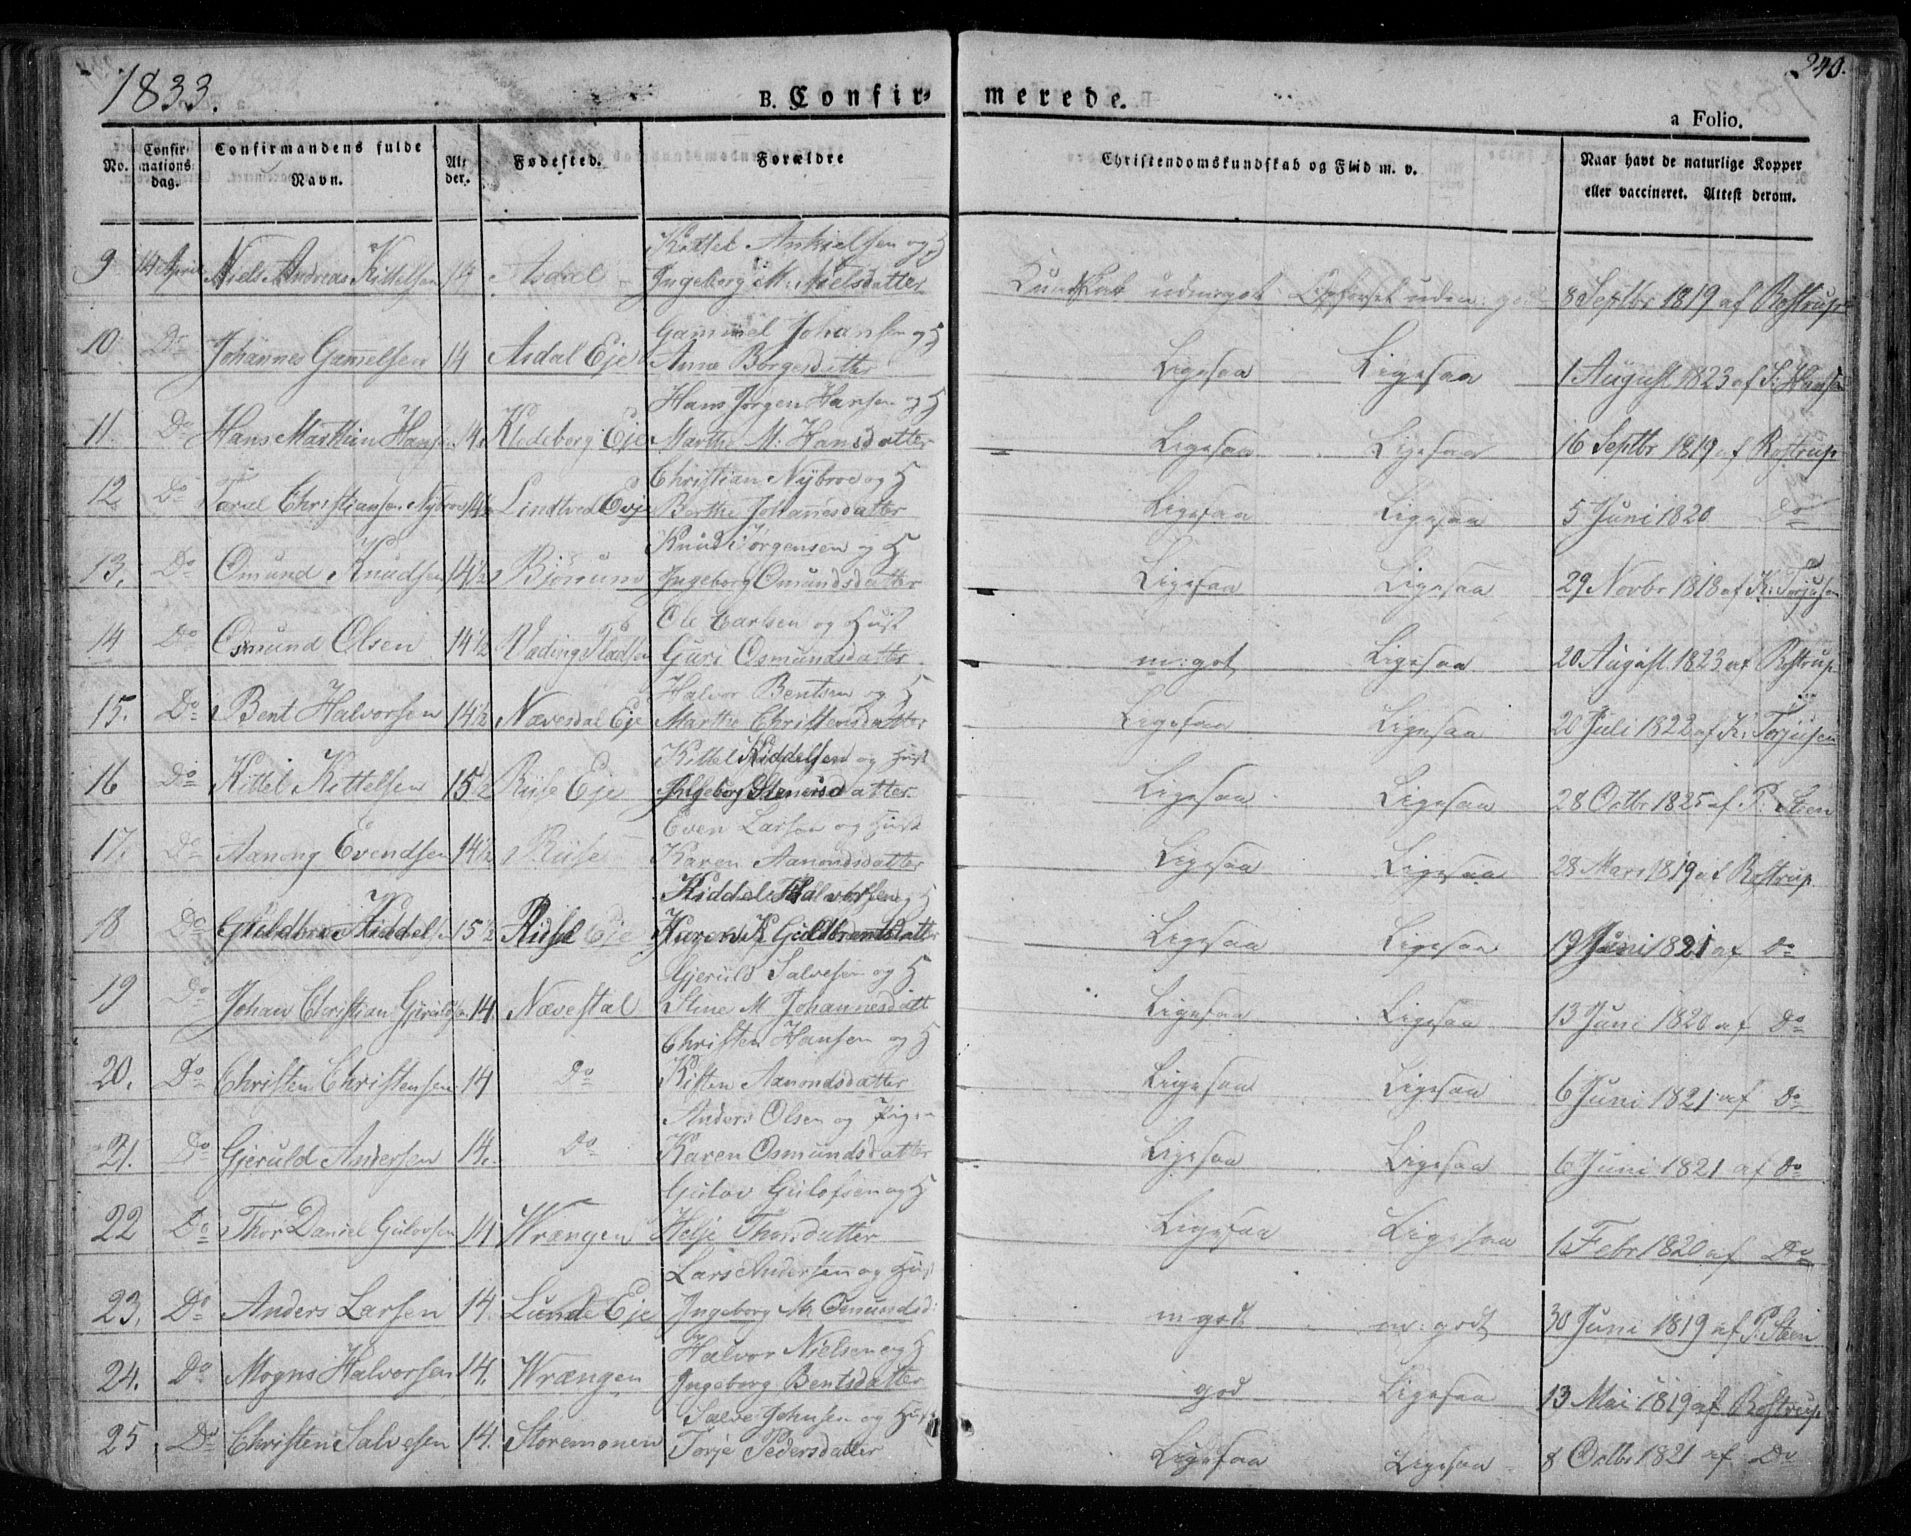 1833.
240.
B. Confirmerede.
a Folio.
No.
Confirmations dag.
Confirmandens fulde Navn.
Alder.
Fødested.
Forældre
Christendomskundskab og Flid m. v.
Naar havt de naturlige Kopper eller vaccineret. Attest derom.
Kittel Ankielsen og H
9 14 April Niels Andreas Kittelsen 14 Asdal Ingeborg M. Nielsdatter Kundskab udmrgot Opførsel uden: 8 Septbr 1819 af Rostrup
Gammel Johansen og H
10 Do Johannes Gamelsen 14 Asdal Eje Anne Børgesdatter Ligesaa Ligesaa 1 August 1823 af S: Hansen
Hans Jørgen Hansen og H
11. Do Hans Marthin Hansen 14 Klodeborg Eje Marthe M. Hansdatter Ligesaa Ligesaa 16 Septbr 1819 af Rostrup
Christian Nÿbroe og H
12 Do Taral Christiansen Nÿbroe 14½ Lindtved Eje Berthe Johanesdatter Ligesaa Ligesaa 5 Juni 1820 Do
Knud Jørgensen og H
13. Do Omund Knudsen 14½ Bjønum Ingeborg Omundsdatter Ligesaa Ligesaa 29 Novbr 1818 af K: Torjusen
Ole Carlsen og Hust
14 Do Osmund Olsen 14½ Vading Pladsen Guri Osmundsdatter m: got Ligesaa 20 August 1823 af Rostrup
Halvor Bentsen og H
15. Do Bent Halvorsen 14½ Nævesdal Eje Marthe Christensdatter Ligesaa Ligesaa 20 Juli 1822 af K: Torjusen
Kittel Kiddelsen og Hust
16 Do Kittel Kittelsen 15½ Rüse Eje Ingeborg Stenersdatter Ligesaa Ligesaa 28 Octbr 1825 af P: Steen
Even Larsen og Hust
17. Do Aanong Evendsen 14½ Rüse Karen Aanondsdatter Ligesaa Ligesaa 28 Mars 1819 af Rostrup
Kiddel Halvorsen og H
18 Do Guldbran Kiddels. 15½ Rüse Eje Karen K Guldbrantsdatter Ligesaa Ligesaa 19 Juni 1821 af Do
Gjeruld Salvesen og H
19 Do Johan Christian Gjeruldsen 14. Næвestal Stine M. Johannesdatt Ligesaa Ligesaa 13 Juni 1820 af Do
Christen Hansen og H
20. Do Christen Christensen 14 Do Kisten Aanondsdatter Ligesaa Ligesaa 6 Juni 1821 af Do
Anders Olsen og Pigen
21. Do Gjeruld Andersen 14. Do Karen Osmundsdatter Ligesaa Ligesaa 6 Juni 1821 af Do
Gulov Gulofsen og H
22 Do Thor Daniel Gulovsen 14 Wrængen Helje Thorsdatter Ligesaa Ligesaa 1 Febr 1820 af Do
Lars Andersen og Hust
23. Do Anders Larsen 14. Lunde Eje Ingeborg M. Osmundsd: m got m: godt 30 Juni 1819 af P: Steen
Halvor Nielsen og H
24. Do Mogns Halvorsen 14. Wrængen Ingeborg Bentsdatter god Ligesaa 13 Mai 1819 af Rostrup
Salve Johnsen og Hust
25 Do Christen Salvesen 14. Storemonen Torje Pedersdatter Ligesaa Ligesaa 8 Octbr 1821 af Do